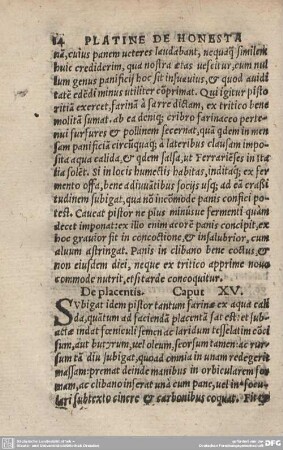 14 PLATINE DE HONESTA
nā, cuius panem ueteres laudabant, nequaq̃ similem
huic crediderim, qua nostra ætas uescitur, cum nul
lum genus panificij hoc sit insuauius, & quod auidi
tate edēdi minus utiliter cōprimat. Qui igitur pisto
ritiā exercet, farinā à farre dictam, ex tritico bene
molita sumat. ab ea deniq; cribro farinaceo perte-
nui furfures & pollinem secernat, quā qdem in men
sam panificiā circūquaq; à lateribus clausam impo-
sita aqua calida, & qdem salsa, ut Ferrariēses in Ita
lia solet. Si in locis humectis habitas, inditaq; ex fer
mento offa, bene adiuuātibus socijs usq; ad eā crassi
tudinem subigat, qua nō incōmode panis confici po-
test. Caueat pistor ne plus minusue fermenti quàm
decet imponat: ex illo enim acorē panis concipit, ex
hoc grauior fit in concoctione, & insalubrior, cum
aluum astringat. Panis in clibano bene coctus, &
non eiusdem diei, neque ex tritico apprime nouo
commode nutrit, et sitarde concoquitur.
De placentis. Caput XV.
SVbigat idem pistor tantum farinæ ex aqua cali
da, quātum ad faciendā placentā sat est: et sub-
acta indat fœniculi semen ac laridum tesselatim cōci
sum, aut butyrum, uel oleum, seorsum tamen: ac ror-
sum tā diu subigat, quoad omnia in unam redegerit
massam: premat deinde manibus in orbicularem for
mam, ac clibano inserat unà cum pane, uel in focu-
lari subtexto cinere & carbonibus coquat. Fit &